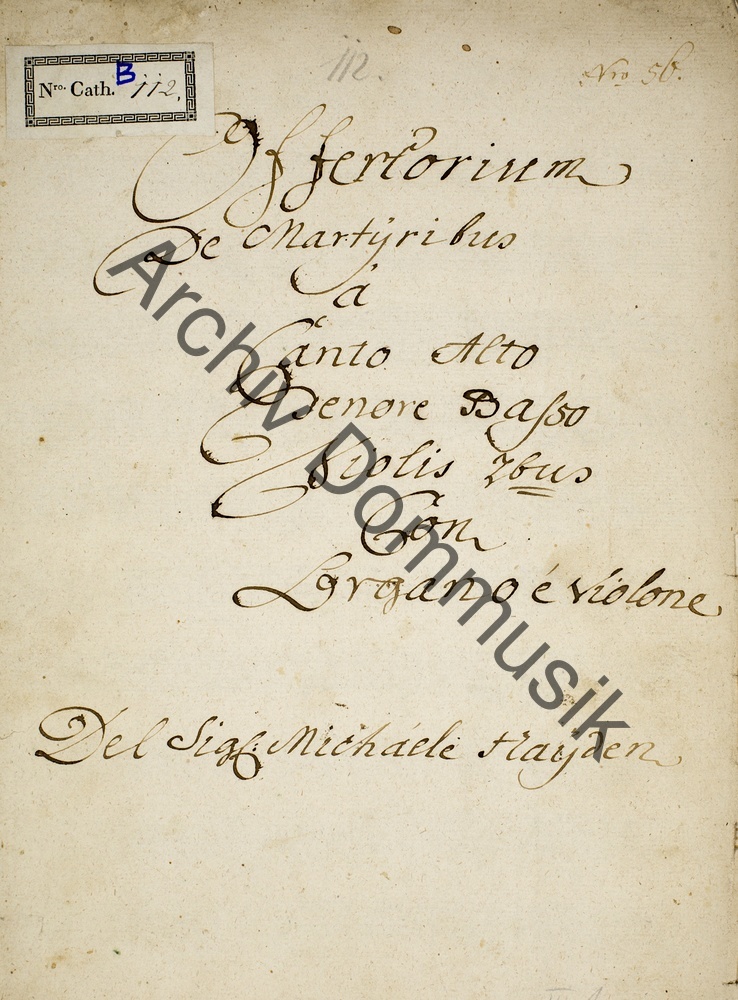 Nro. Cath. B 112,
112.
Nro 56.
Offertorium
De Martÿribus
á
Canto Alto
Tenore Basso
Violis 2bus
Con
Lorgano é violone
Del Sigl: Michäele Haÿden
Archiv Dommusik